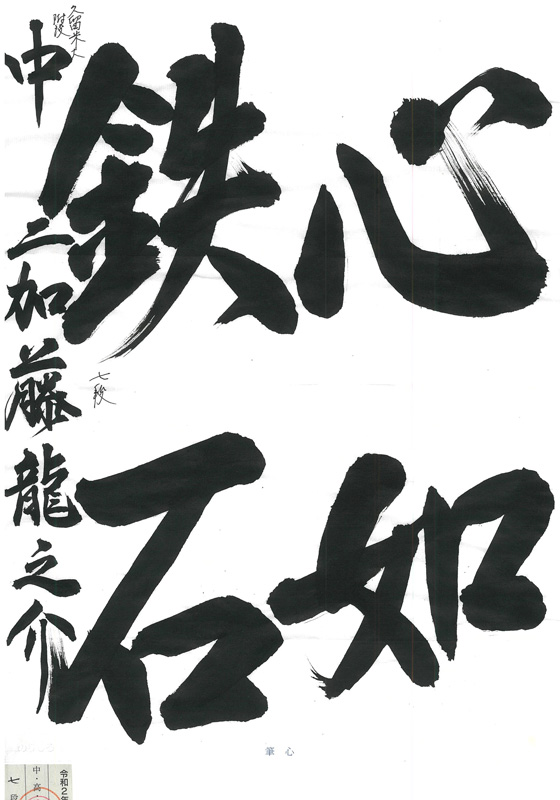 心如
鉄石
久留米大
附設
中二加藤龍之介
七段
筆心
令和2年
中・高・
七段